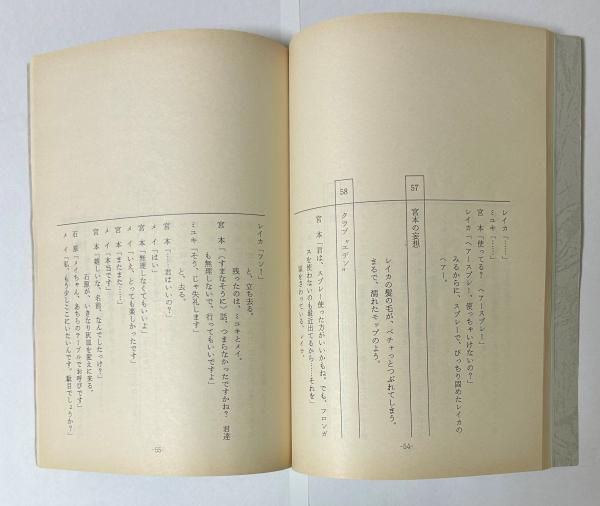 レイカ「……」
ミユキ「……」
宮 本「使ってる! ヘアースプレー!」
レイカ「ヘアースプレー、使っちゃいけないの?」
みるからに、スプレーで、びっちり固めたレイカの
ヘアー。
57 宮本の妄想
レイカの髪の毛が、ベチャっとつぶれてしまう。
まるで、濡れたモップのよう。
58 クラブ“エデン”
宮 本「君は、スプレー使った方がいいかもね。でも、フロンガ
スを使わないのも最近出てるから……それを」
髪をさわっている、レイカ。
-54-
レイカ「フン!」
と、立ち去る。
残ったのは、ミユキとメイ。
宮 本「(すまなそうに)話、つまらなかったですかね? 君達
も無理しないで、行ってもいいですよ」
ミユキ「そう、じゃ失礼します」
と、去る。
宮 本「……君はいいの?」
メ イ「はい」
宮 本「無理しなくてもいいよ」
メ イ「いえ、とっても楽しかったです」
宮 本「またまた……」
メ イ「本当です」
宮 本「嬉しいな、名前、なんでしたっけ?」
石原が、いきなり灰皿を変えに来る。
石 原「メイちゃん、あちらのテーブルでお呼びです」
メ イ「私、もう少しここにいたいんです。駄目でしょうか?」
-55-